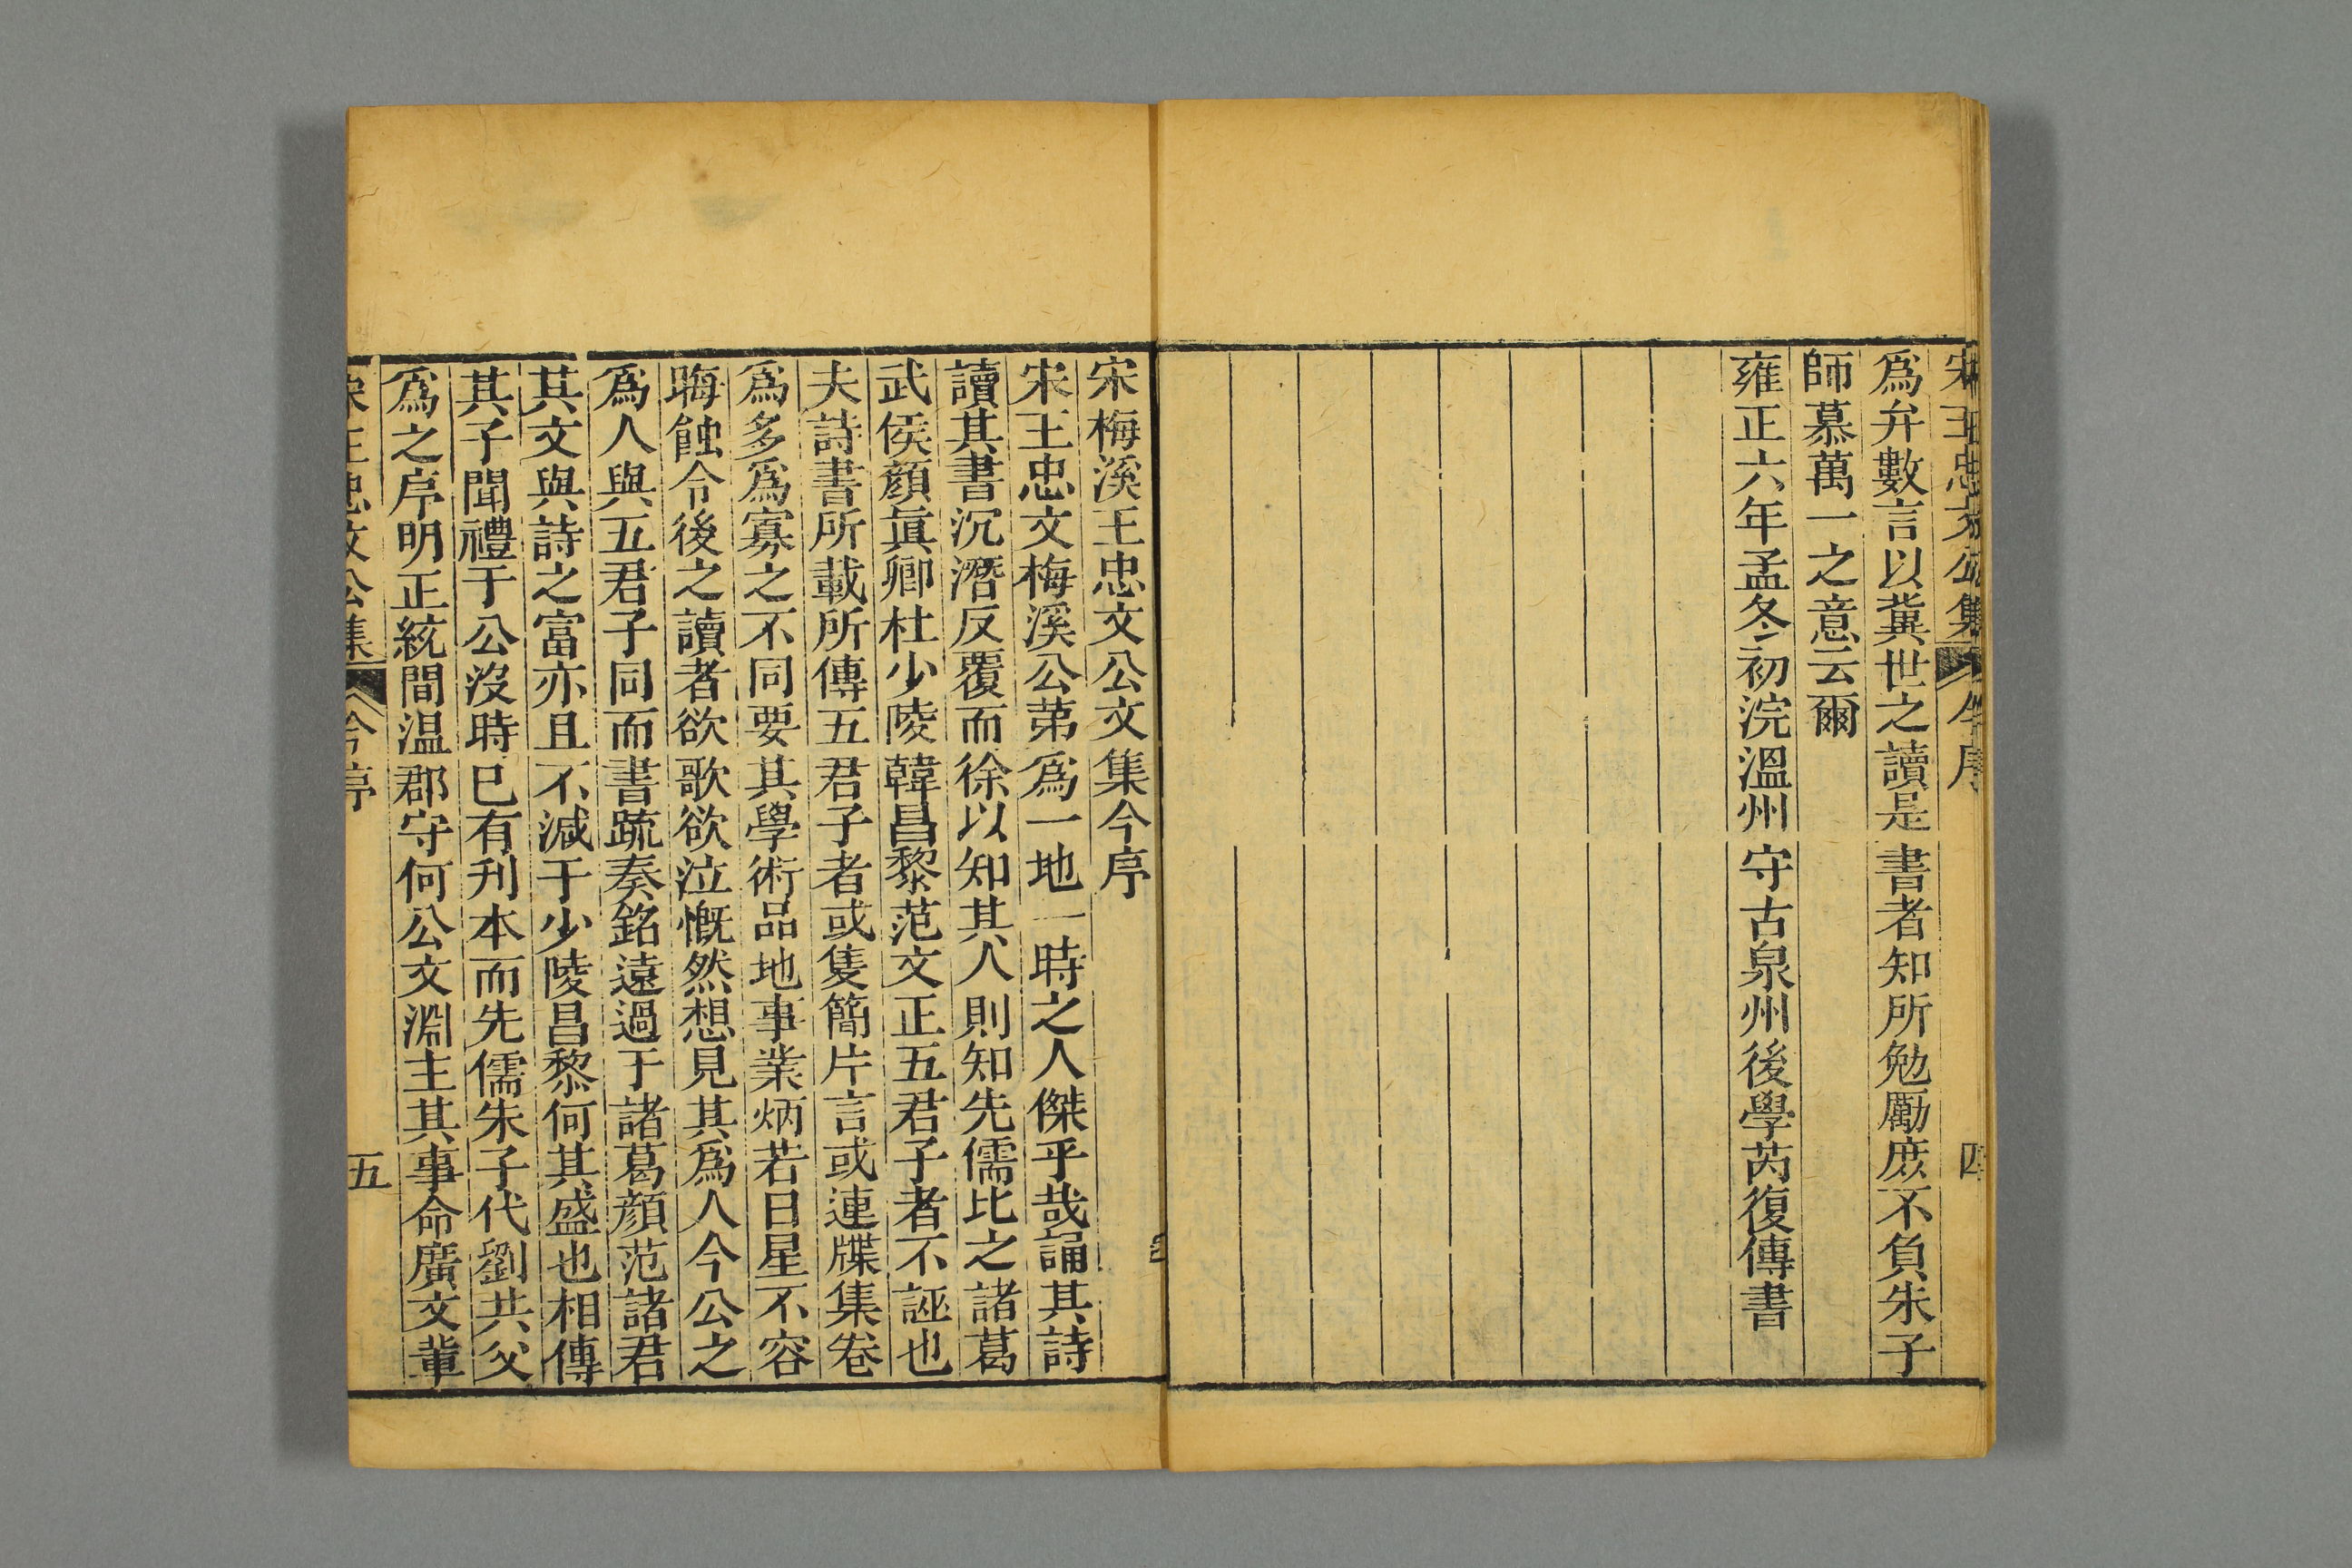 宋王忠文公集 今序 四
爲弁數言以冀世之讀是書者知所勉勵庶不負朱子
師慕萬一之意云爾
雍正六年孟冬初浣溫州守古泉州後學芮復傳書
宋梅溪王忠文公文集今序
宋王忠文梅溪公第爲一地一時之人傑乎哉誦其詩
讀其書沉潛反覆而徐以知其人則知先儒比之諸葛
武侯顏眞卿杜少陵韓昌黎范文正五君子者不誣也
夫詩書所載所傳五君子者或隻簡片言或連牒集卷
爲多爲寡之不同要其學術品地事業炳若日星不容
晦蝕令後之讀者欲歌欲泣慨然想見其爲人今公之
爲人與五君子同而書疏奏銘遠過于諸葛顏范諸君
其文與詩之富亦且不減于少陵昌黎何其盛也相傳
其子聞禮于公沒時已有刋本而先儒朱子代劉共父
爲之序明正統間温郡守何公文淵主其事命廣文輩
宋王忠文公集 今序 五